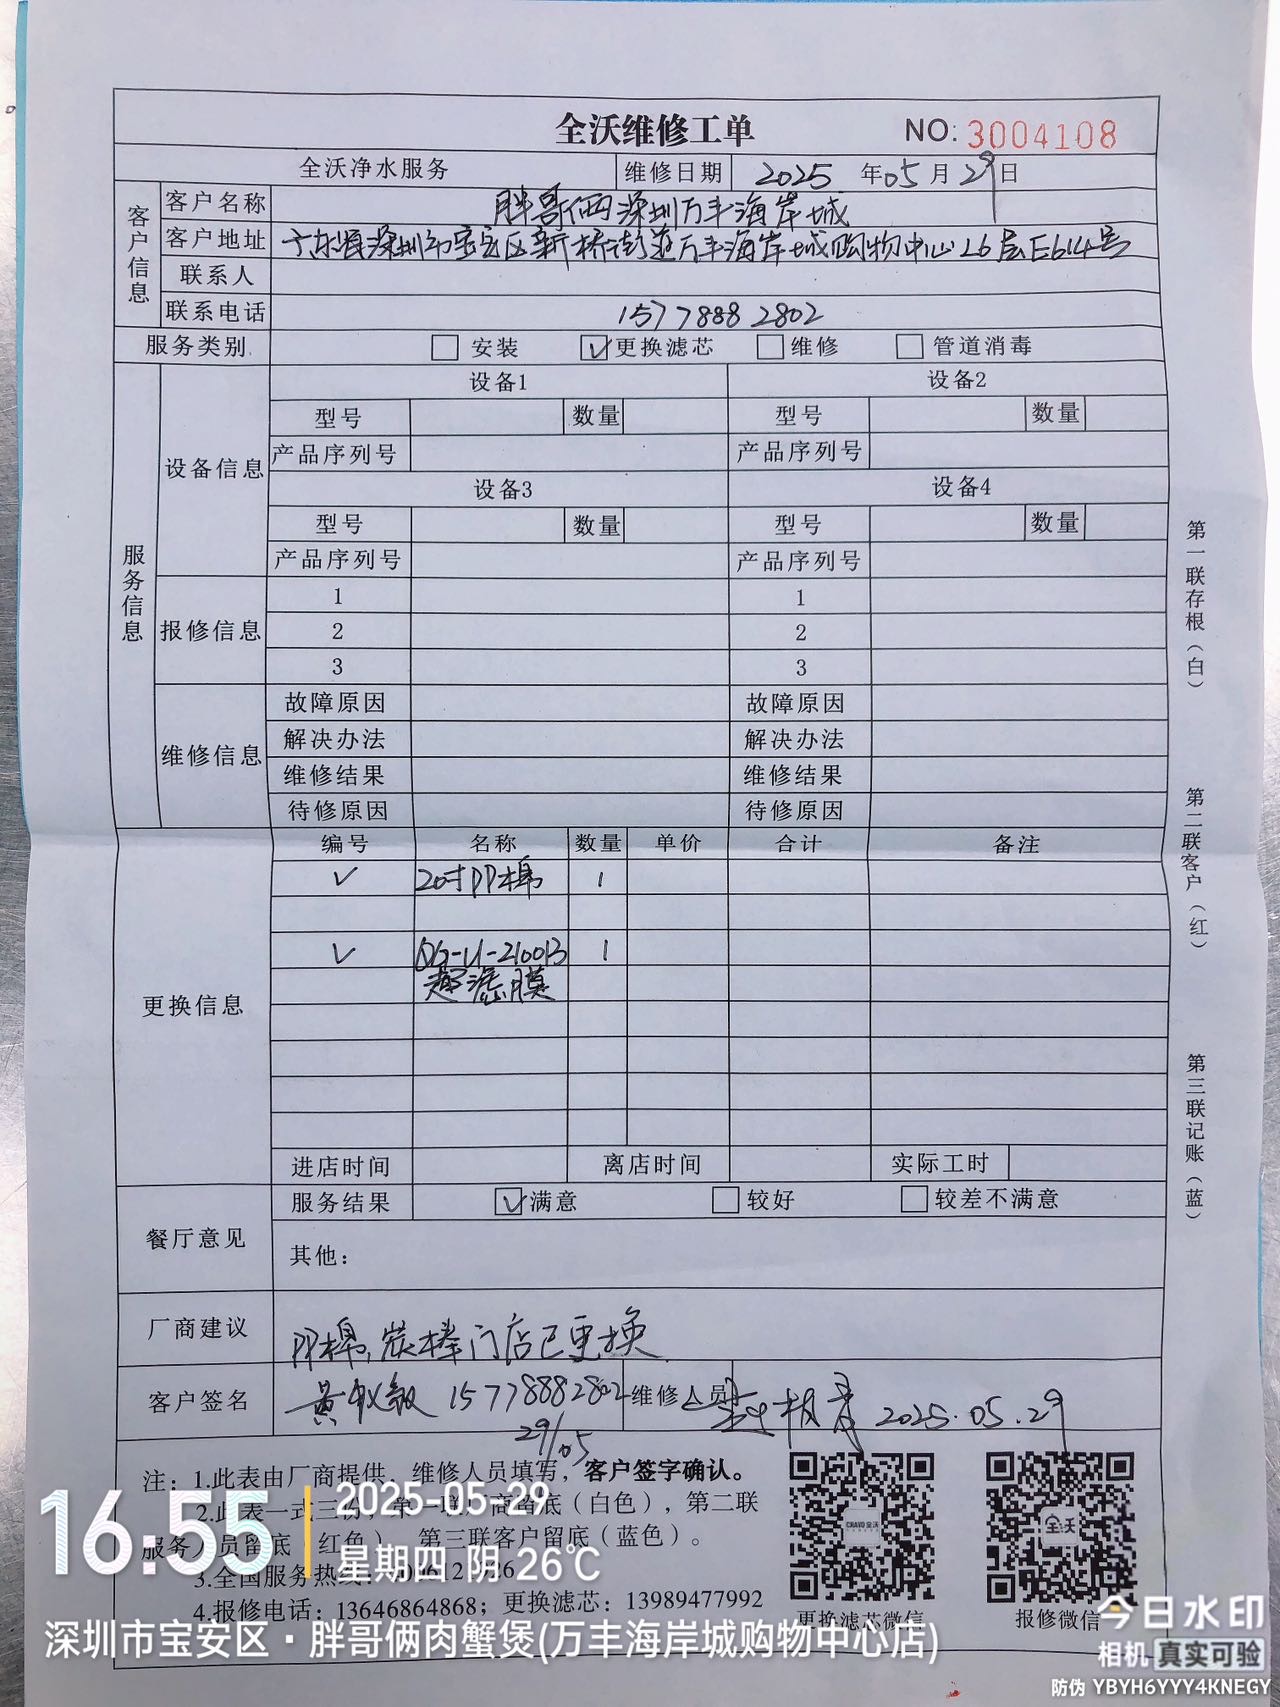 全沃维修工单 NO: 3004108
全沃净水服务 维修日期 2025 年 05 月 29 日
客户信息
客户名称 胖哥俩深圳万丰海岸城
客户地址 广东省深圳市宝安区新桥街道万丰海岸城购物中心L6层E614号
联系人
联系电话 15778882802
服务类别 安装 ✓更换滤芯 维修 管道消毒
服务信息
设备信息
设备1 设备2
型号 数量 型号 数量
产品序列号 产品序列号
设备3 设备4
型号 数量 型号 数量
产品序列号 产品序列号
报修信息
1 1
2 2
3 3
维修信息
故障原因 故障原因
解决办法 解决办法
维修结果 维修结果
待修原因 待修原因
更换信息
编号 名称 数量 单价 合计 备注
✓ 20寸PP棉 1
✓ -U-210013 1
超滤膜
进店时间 离店时间 实际工时
餐厅意见
服务结果 ✓满意 较好 较差不满意
其他：
厂商建议 PP棉,炭棒门店已更换
客户签名 黄 15778882802 维修人员 2025.05.29
29/05
注：1.此表由厂商提供，维修人员填写，客户签字确认。
2.此表一式三份，第一联厂商留底（白色），第二联
服务人员留底（红色），第三联客户留底（蓝色）。
3.全国服务热线：
4.报修电话：13646864868；更换滤芯：13989477992
CRAVO 全沃
全沃
更换滤芯微信 报修微信
第一联存根（白）
第二联客户（红）
第三联记账（蓝）
16:55
2025-05-29
星期四 阴 26℃
深圳市宝安区·胖哥俩肉蟹煲(万丰海岸城购物中心店)
今日水印
相机 真实可验
防伪 YBYH6YYY4KNEGY